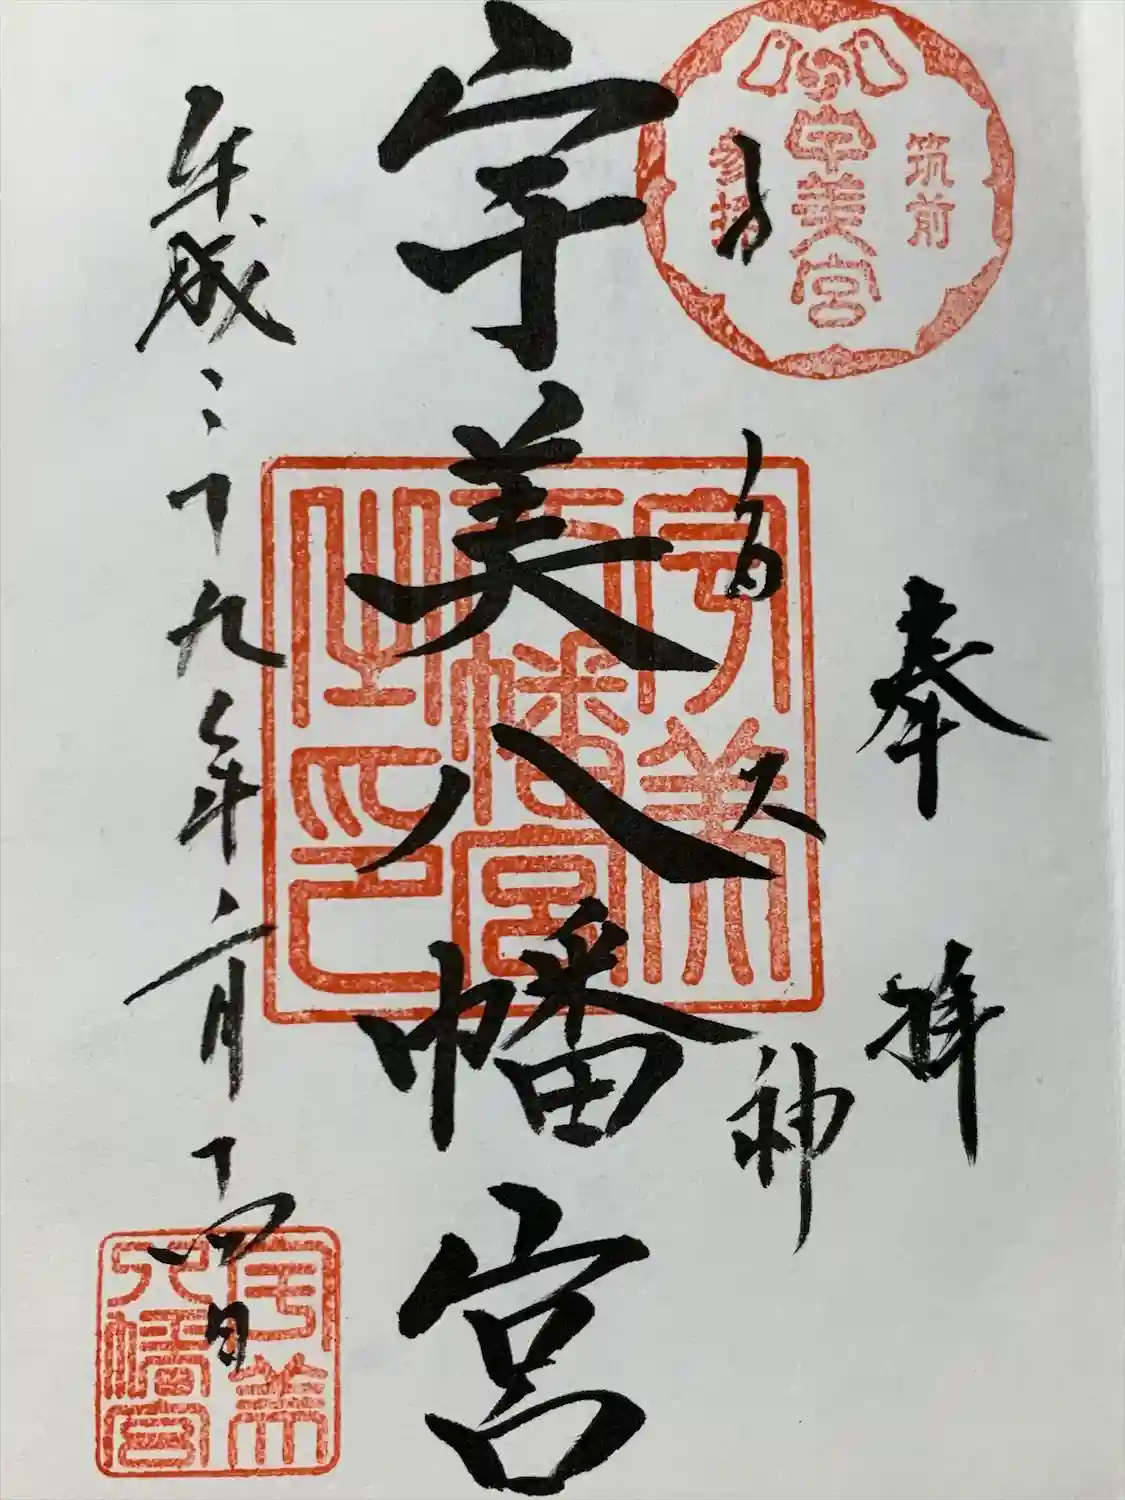 筑前
宇美宮
参拝
奉拝
神
宇美八幡宮
宇美
八幡宮
之印
平成二十九年二月十四日
宇美
八幡宮